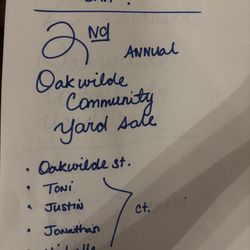 2nd
ANNUAL
Oakwilde
Community
Yard Sale
• Oakwilde St.
• Toni
• Justin
• Jonathan
Ct.